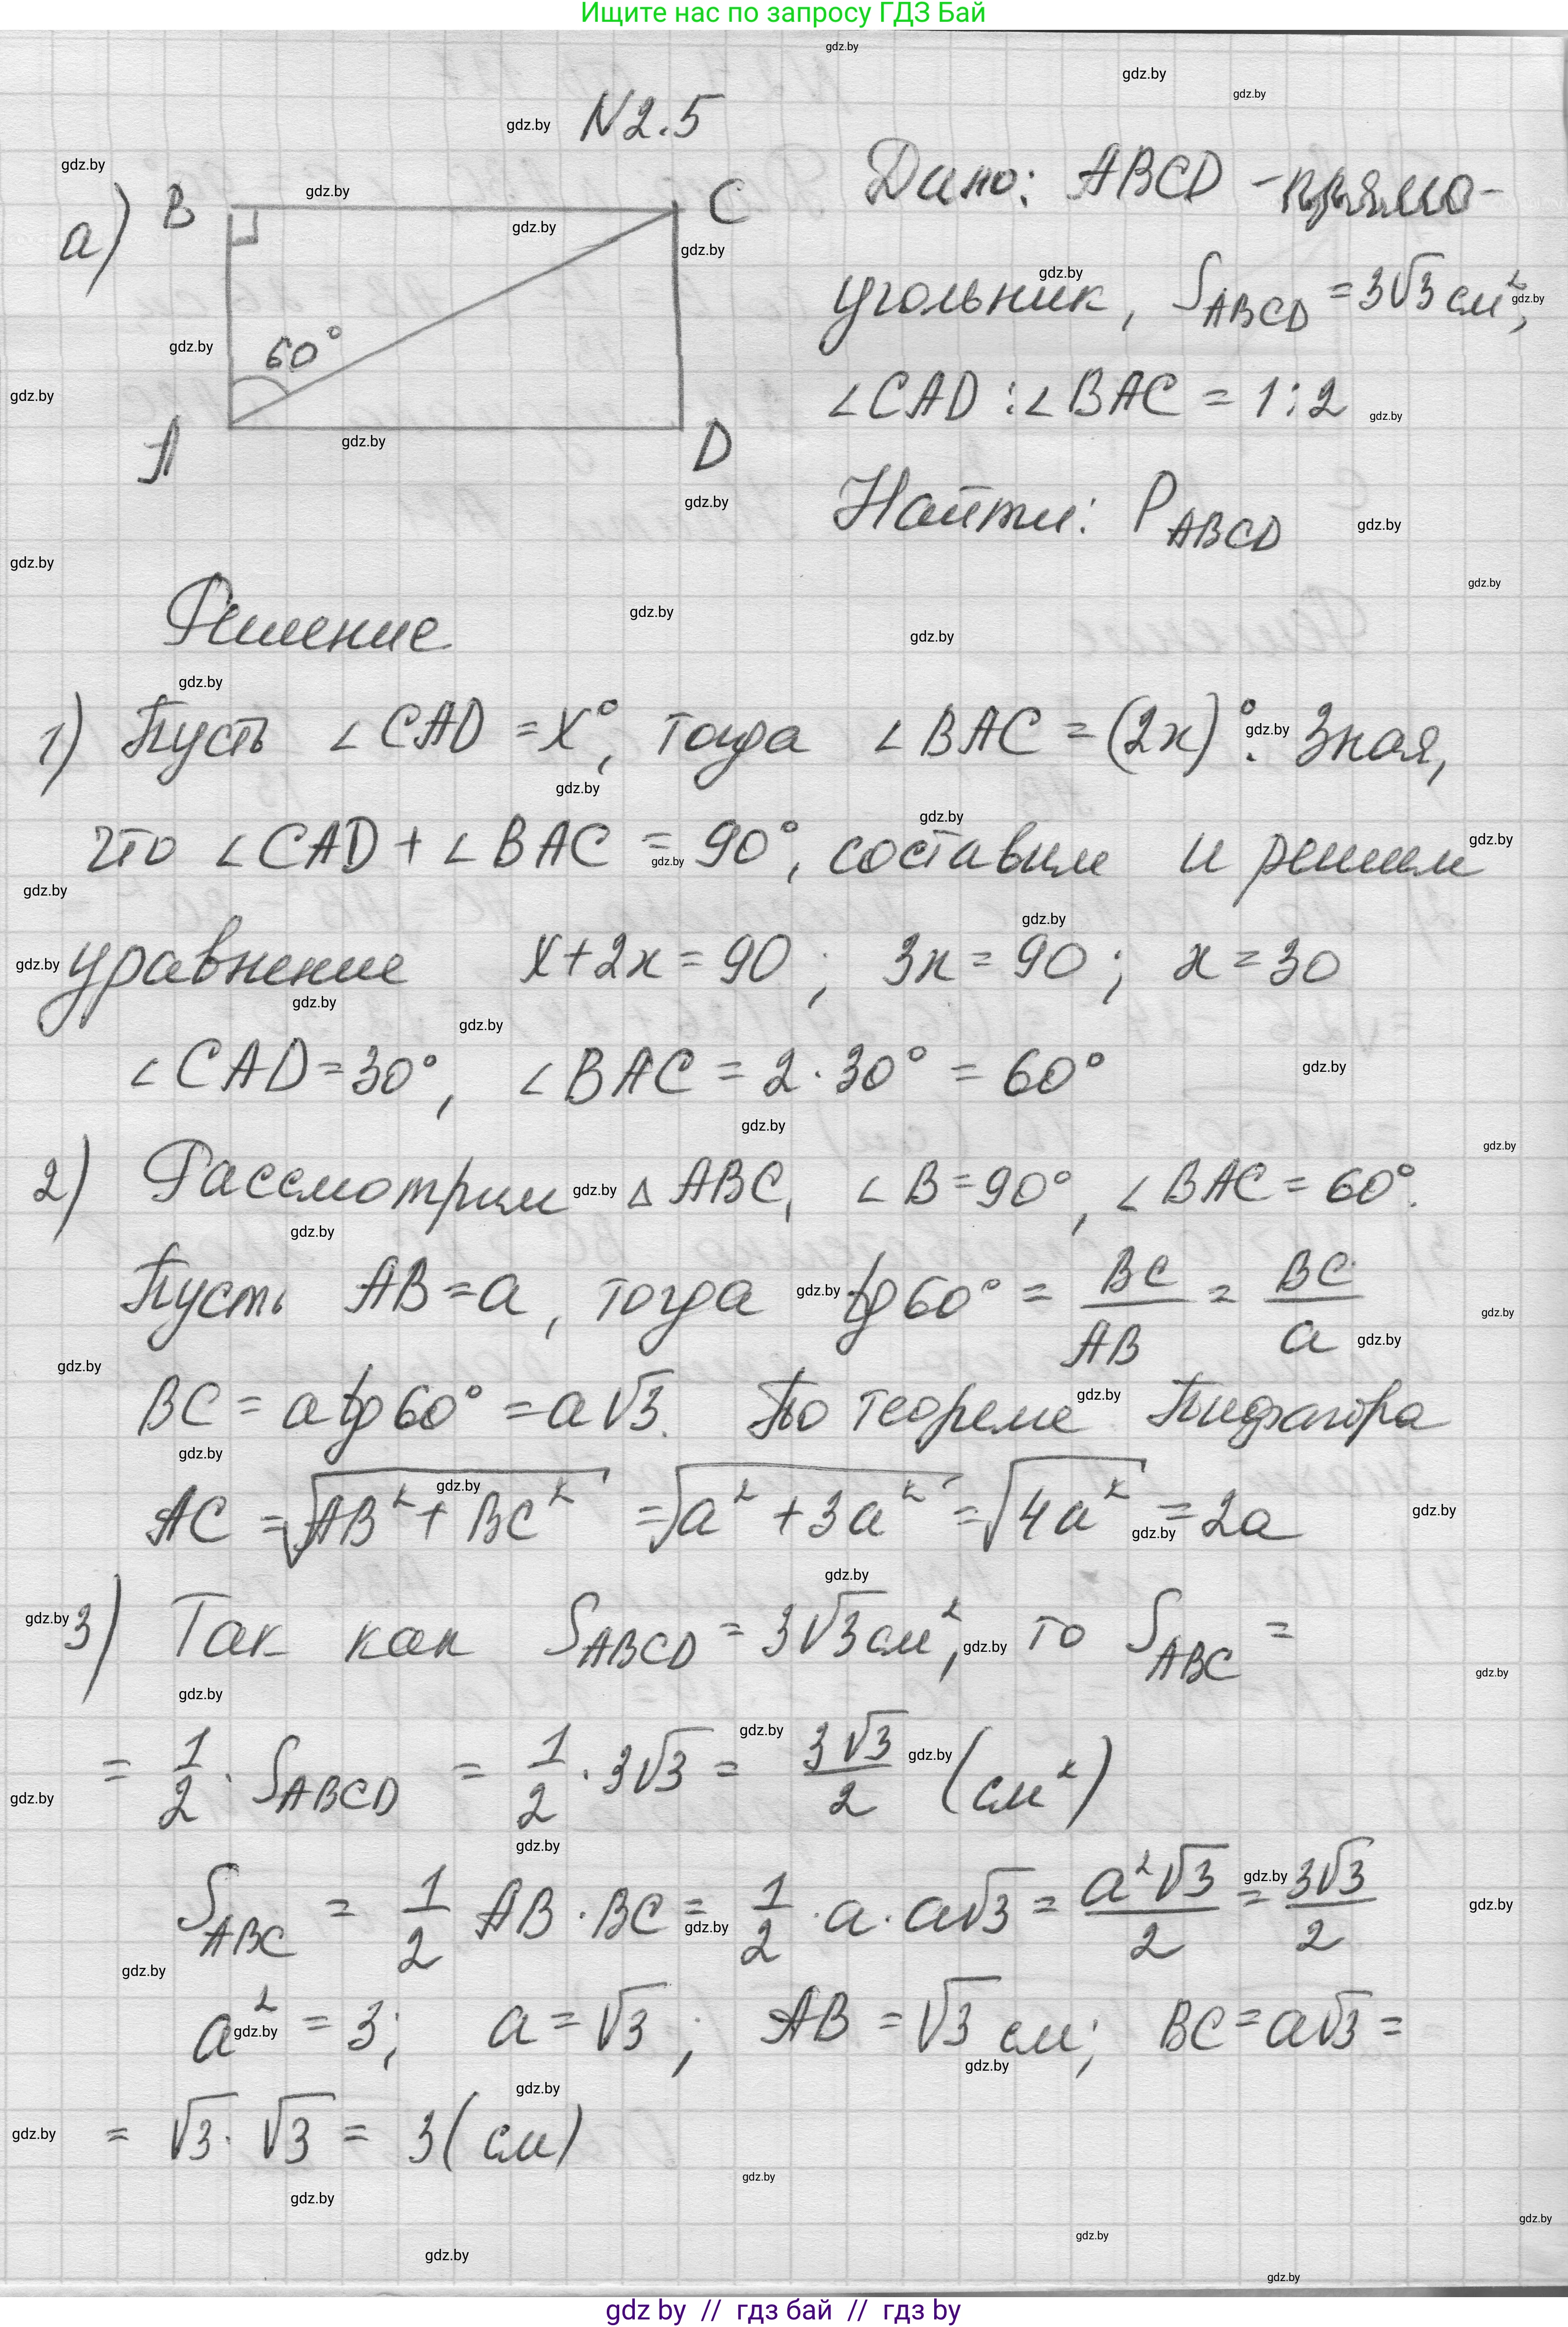 Ищите нас по запросу ГДЗ Бай
N2.5
а)
B
C
60°
A
D
Дано: ABCD - прямо-
угольник, S_ABCD = 3√3 см²,
∠CAD : ∠BAC = 1:2
Найти: P_ABCD
Решение
1) Пусть ∠CAD = x°, тогда ∠BAC = (2x)°. Зная,
что ∠CAD + ∠BAC = 90°, составим и решим
уравнение x+2x = 90; 3x = 90; x = 30
∠CAD = 30°, ∠BAC = 2·30° = 60°
2) Рассмотрим △ABC, ∠B = 90°, ∠BAC = 60°.
Пусть AB = a, тогда tg 60° = BC/AB = BC/a
BC = a tg 60° = a√3. По теореме Пифагора
AC = √(AB² + BC²) = √(a² + 3a²) = √(4a²) = 2a
3) Так как S_ABCD = 3√3 см², то S_ABC =
= 1/2 · S_ABCD = 1/2 · 3√3 = 3√3/2 (см²)
S_ABC = 1/2 AB · BC = 1/2 · a · a√3 = a²√3/2 = 3√3/2
a² = 3; a = √3; AB = √3 см; BC = a√3 =
= √3 · √3 = 3 (см)
gdz by // гдз бай // гдз by